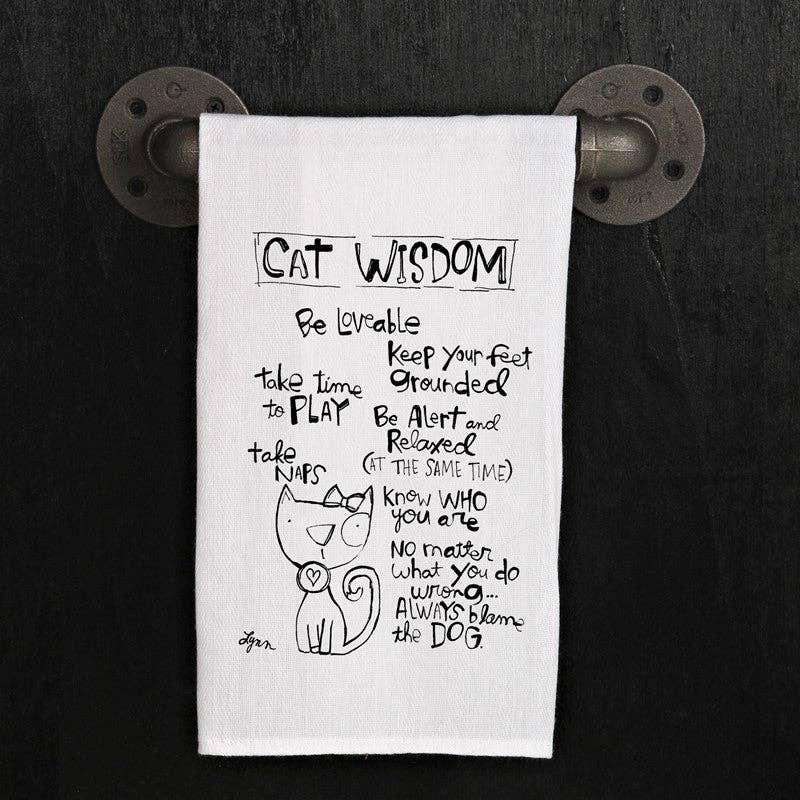 CAT WISDOM
Be Loveable
Keep your feet
grounded
take time
to PLAY
Be Alert and
Relaxed
(AT THE SAME TIME)
take
NAPS
Know WHO
you are
NO matter
what you do
wrong...
ALWAYS blame
the DOG.
Lynn